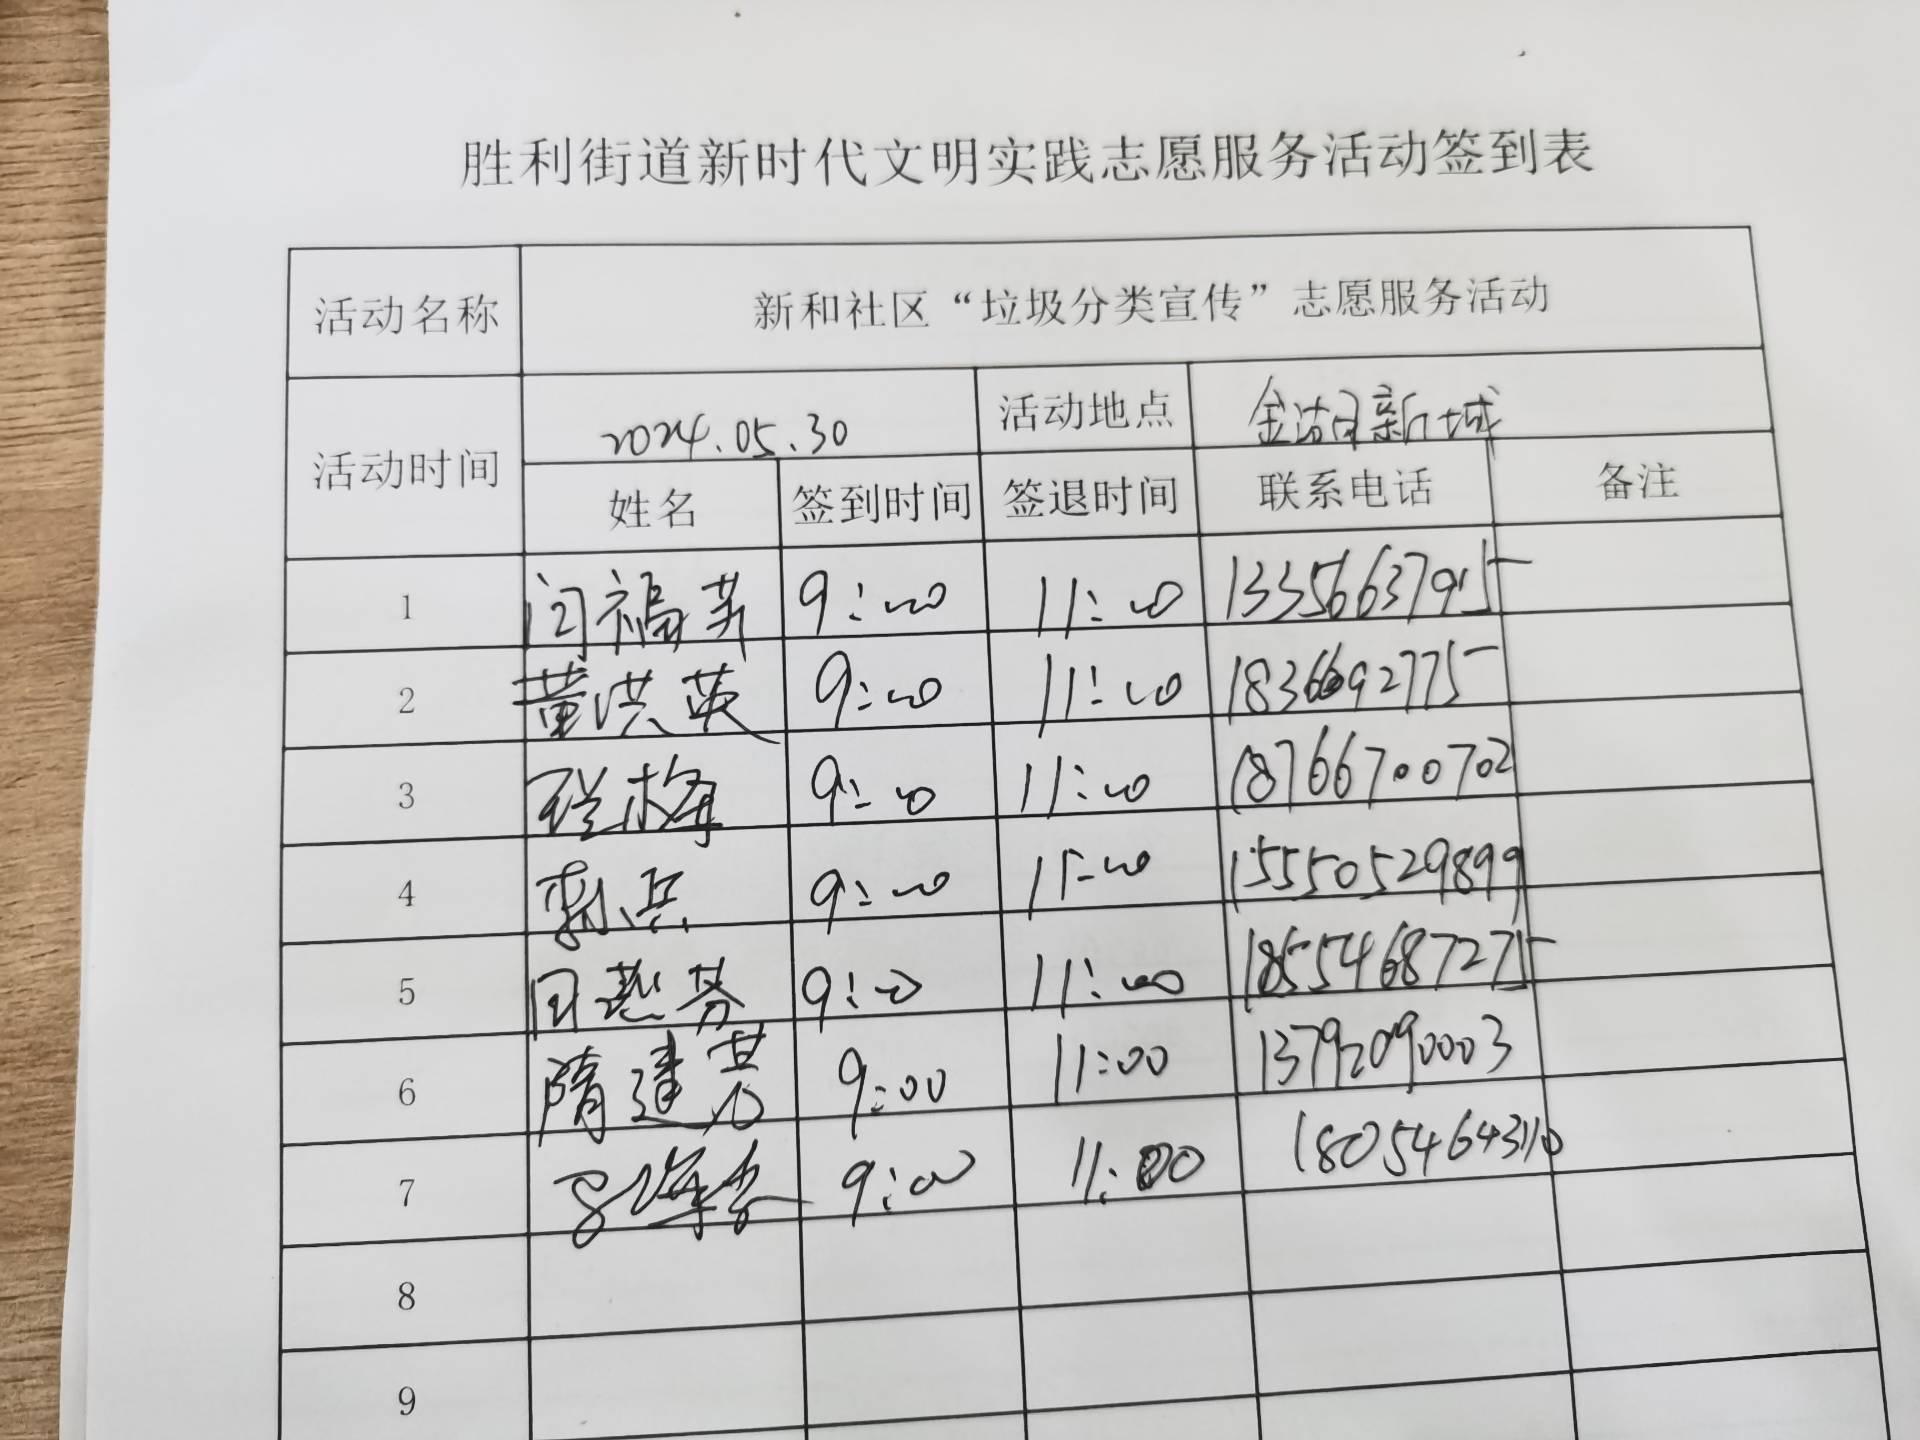 胜利街道新时代文明实践志愿服务活动签到表
活动名称 新和社区“垃圾分类宣传”志愿服务活动
活动时间 2024.05.30 活动地点 金湖新城
姓名 签到时间 签退时间 联系电话 备注
1 闫福芳 9:00 11:00
2 黄洪英 9:00 11:00 18366692775
3 梅 9:00 11:00 18766700702
4 9:00 11:00 15550529899
5 9:00 11:00 18554687275
6 隋建芳 9:00 11:00 13792090003
7 9:00 11:00 18054643110
8
9